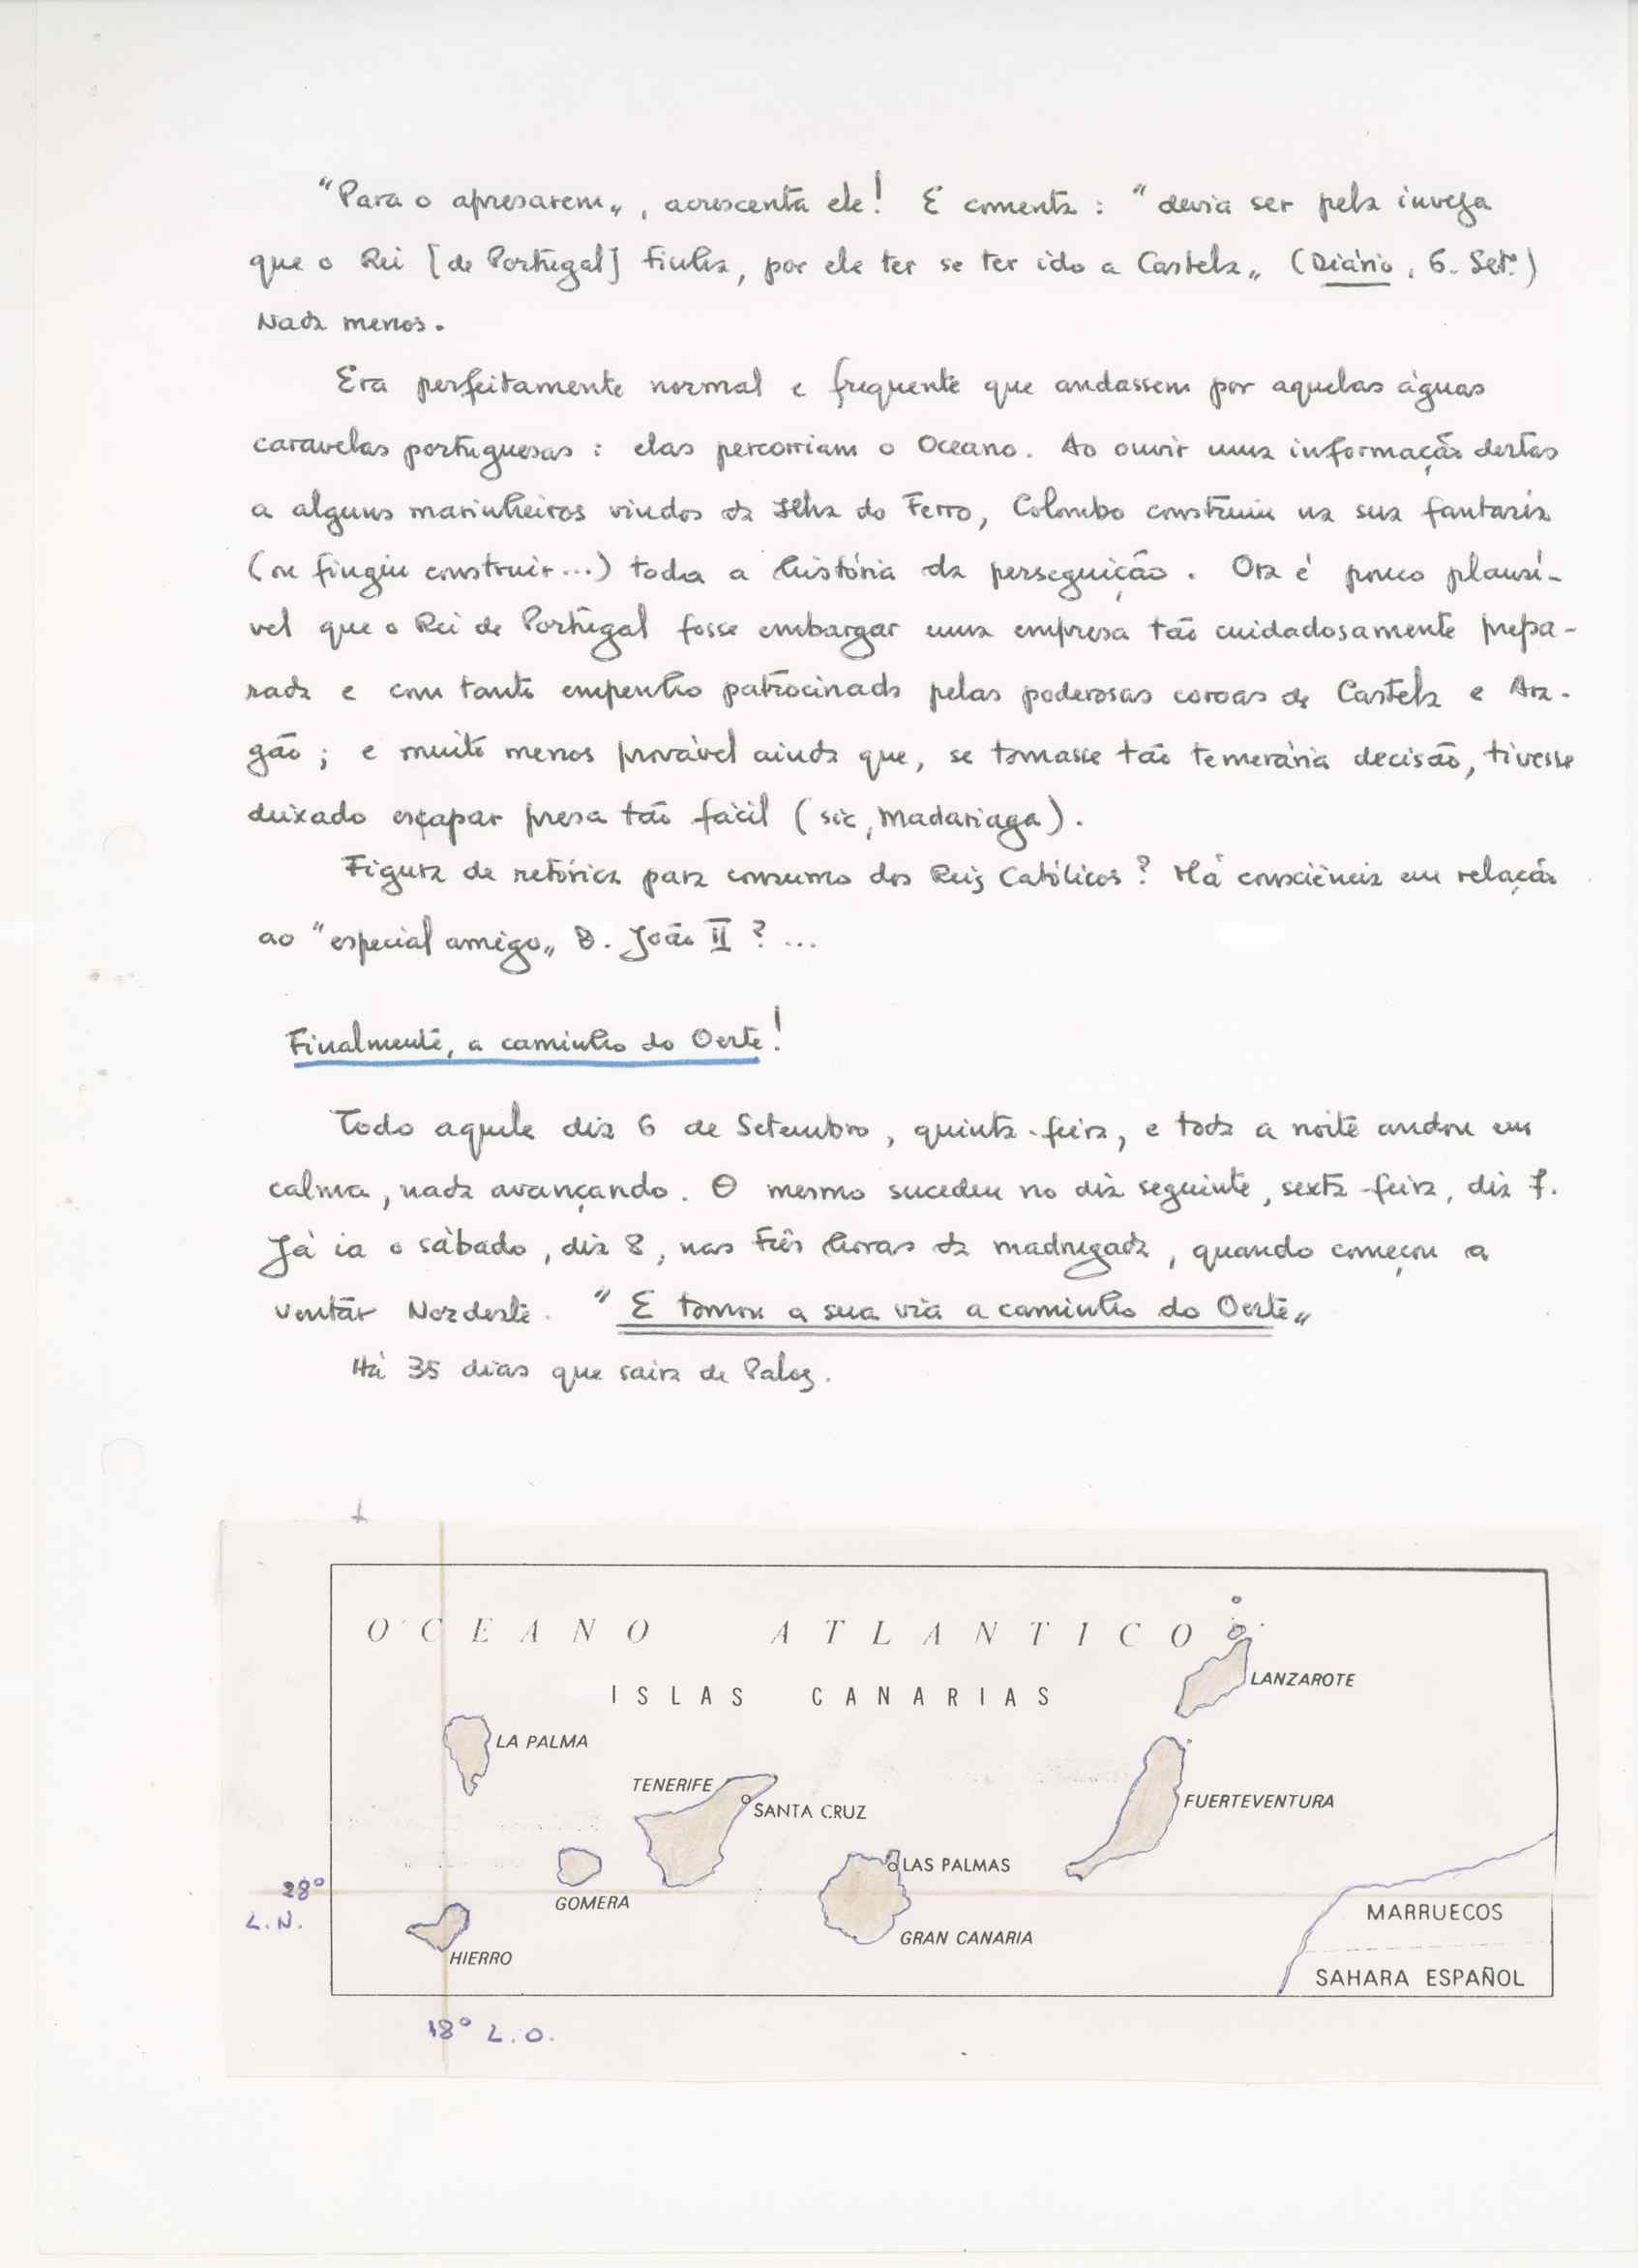 "Para o apresarem„, acrescenta ele! E comenta: "devia ser pela inveja
que o Rei [de Portugal] tinha, por ele ter se ter ido a Castela„ (Diário, 6. Set.º)
Nada menos.
Era perfeitamente normal e frequente que andassem por aquelas águas
caravelas portuguesas: elas percorriam o Oceano. Ao ouvir uma informação destas
a alguns marinheiros vindos da Ilha do Ferro, Colombo construiu na sua fantasia
(ou fingiu construir...) toda a história da perseguição. Ora é pouco plausí-
vel que o Rei de Portugal fosse embargar uma empresa tão cuidadosamente prepa-
rada e com tanto empenho patrocinada pelas poderosas coroas de Castela e Ara-
gão; e muito menos provável ainda que, se tomasse tão temerária decisão, tivesse
deixado escapar presa tão fácil (sic, Madariaga).
Figura de retórica para consumo dos Reis Católicos? Má consciência em relação
ao "especial amigo„ D. João II?...
Finalmente, a caminho do Oeste!
Todo aquele dia 6 de Setembro, quinta-feira, e toda a noite andou em
calma, nada avançando. O mesmo sucedeu no dia seguinte, sexta-feira, dia 7.
Já ia o sábado, dia 8, nas três horas da madrugada, quando começou a
ventar Nordeste. "E tomou a sua via a caminho do Oeste„
Há 35 dias que saira de Palos.
OCEANO ATLANTICO
LANZAROTE
ISLAS CANARIAS
LA PALMA
TENERIFE
SANTA CRUZ
FUERTEVENTURA
LAS PALMAS
28º
L.N.
GOMERA
MARRUECOS
GRAN CANARIA
HIERRO
SAHARA ESPAÑOL
18º L.O.